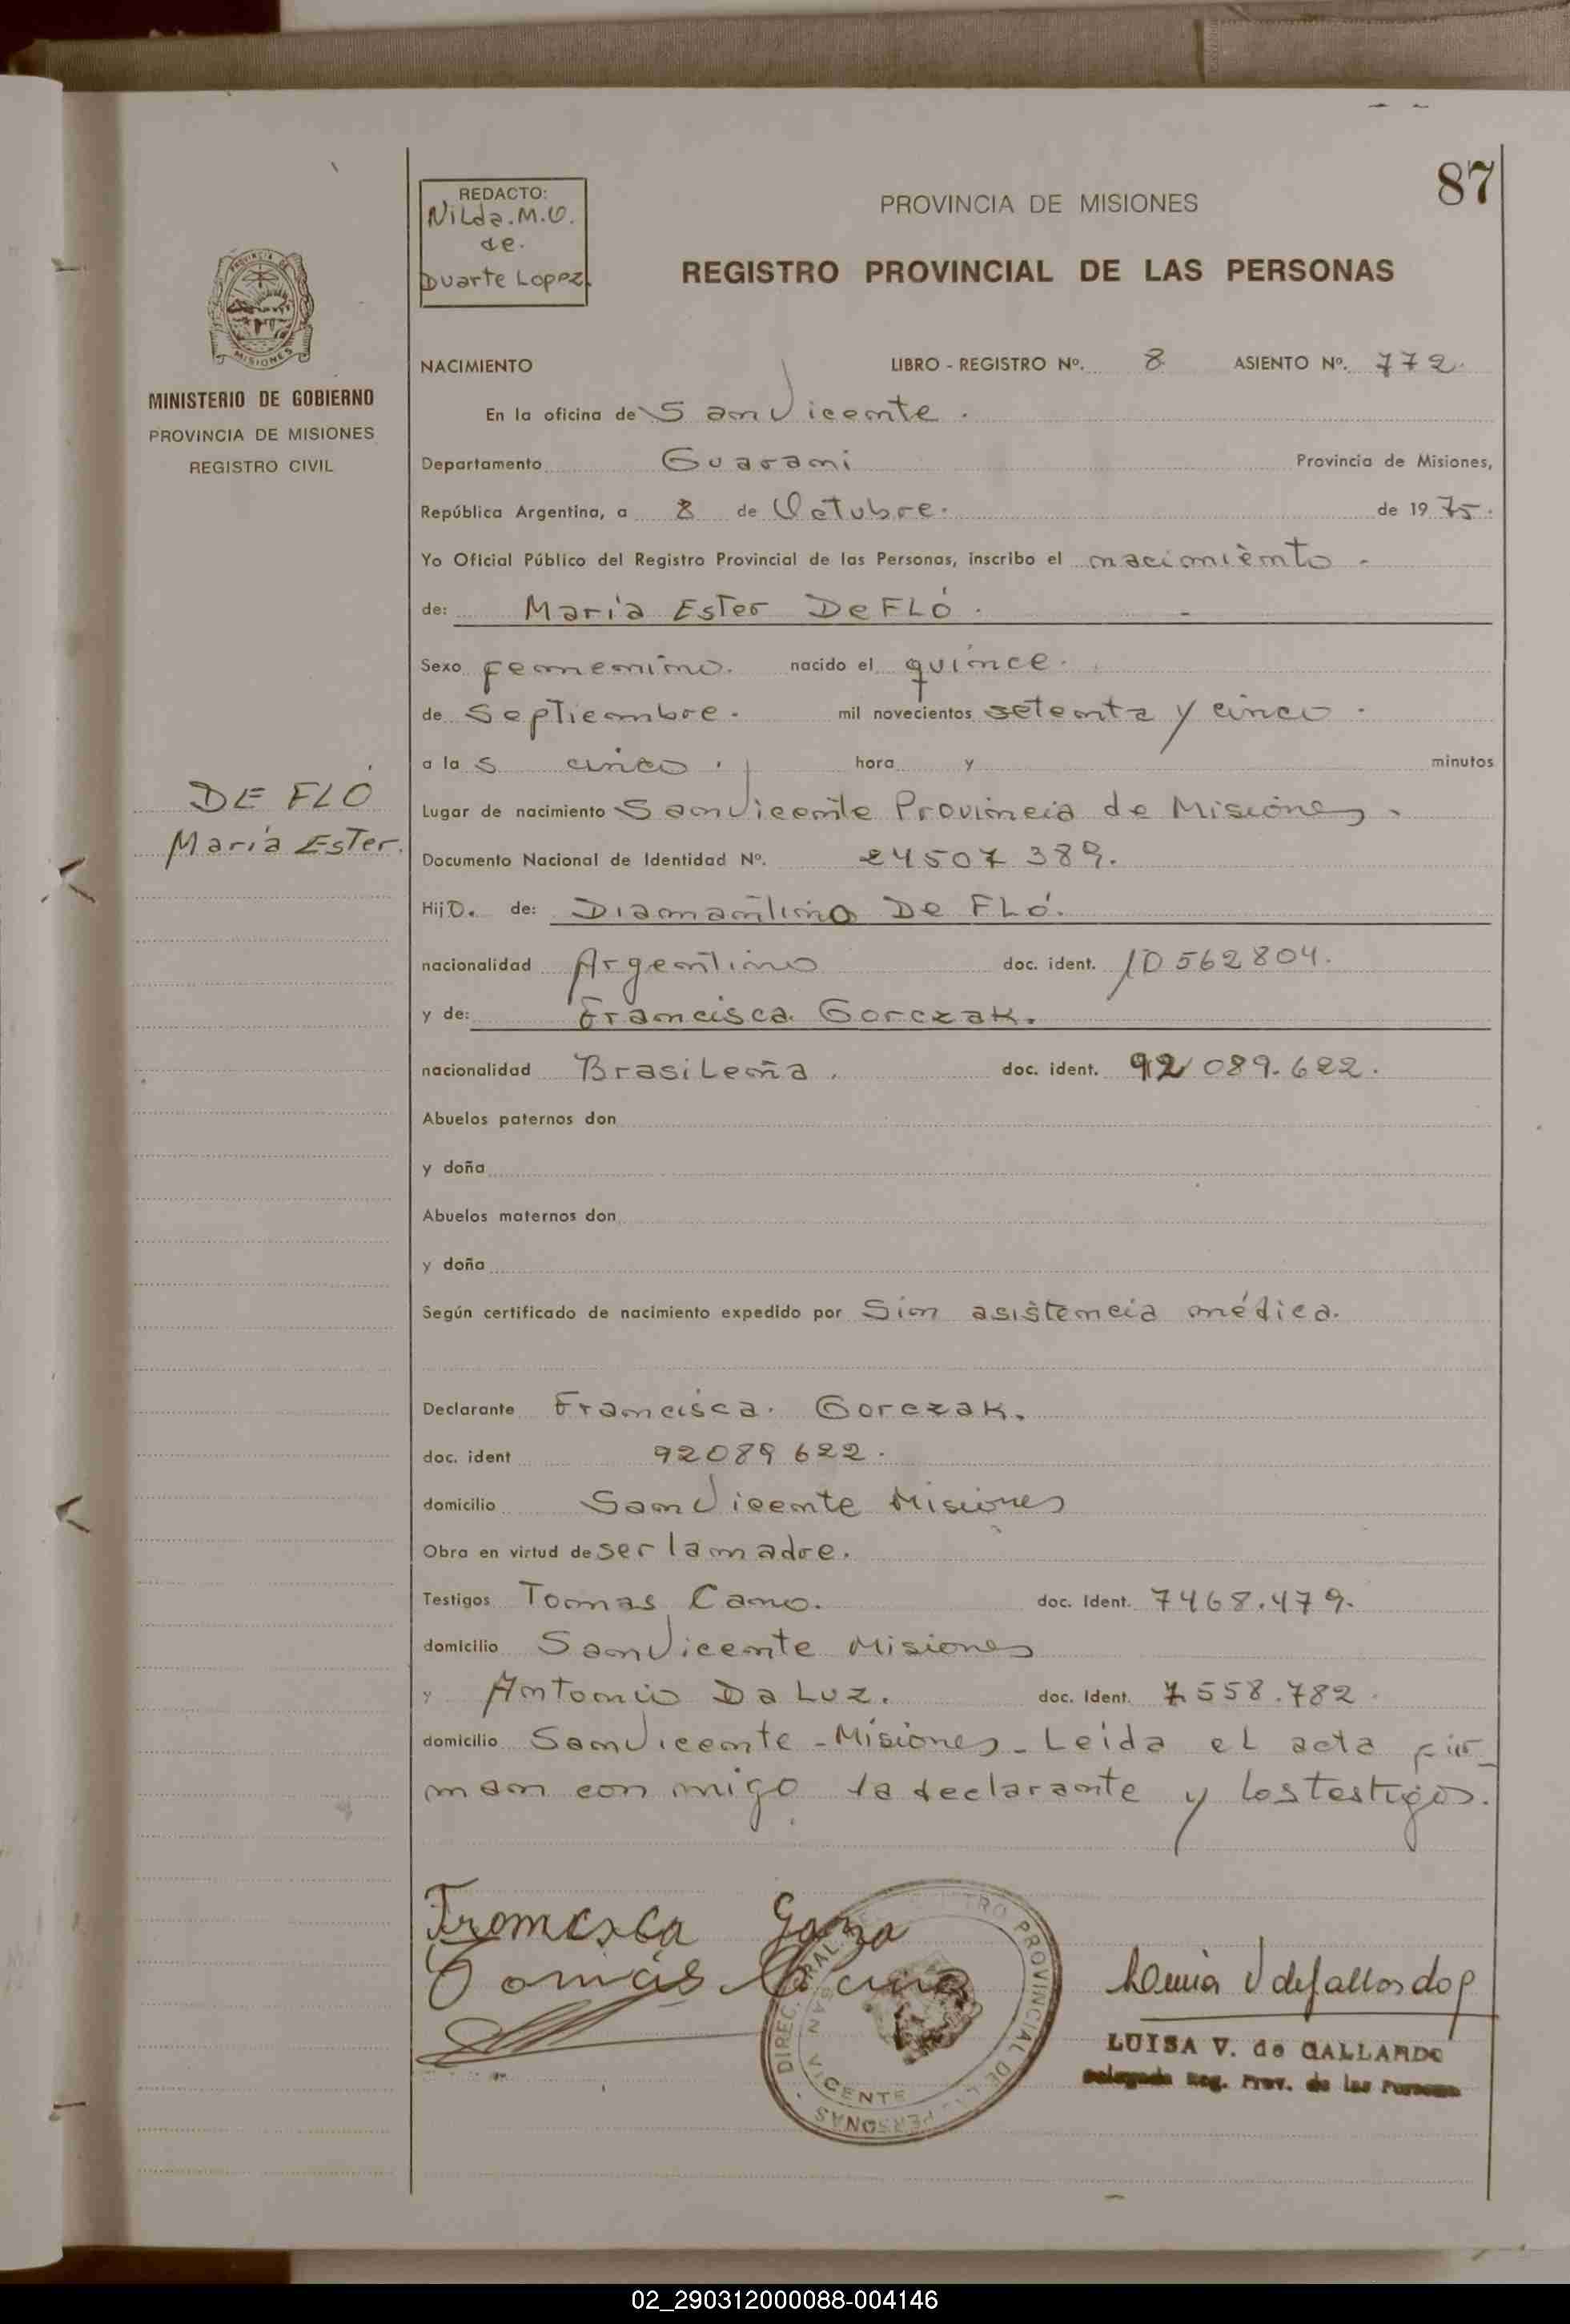 87
REDACTO:
Nilda. M.V.
de.
Duarte Lopez.
PROVINCIA DE MISIONES
REGISTRO PROVINCIAL DE LAS PERSONAS
PROVINCIA DE
MISIONES
MINISTERIO DE GOBIERNO
PROVINCIA DE MISIONES
REGISTRO CIVIL
DE FLÓ
María Ester.
NACIMIENTO LIBRO - REGISTRO Nº. 8 ASIENTO Nº. 772.
En la oficina de San Vicente.
Departamento Guarani Provincia de Misiones,
República Argentina, a 8 de Octubre. de 1975.
Yo Oficial Público del Registro Provincial de las Personas, inscribo el nacimiento.
de: María Ester De FLÓ. -
Sexo femenino. nacido el quince.
de Septiembre. mil novecientos setenta y cinco.
a las cinco. hora y minutos
Lugar de nacimiento San Vicente Provincia de Misiones.
Documento Nacional de Identidad Nº. 24507389.
HijO. de: Diamantino De FLÓ.
nacionalidad Argentino doc. ident. 10562804.
y de: Francisca Gorczak.
nacionalidad Brasileña. doc. ident. 92089.622.
Abuelos paternos don
y doña
Abuelos maternos don
y doña
Según certificado de nacimiento expedido por Sin asistencia médica.
Declarante Francisca. Gorczak.
doc. ident 92089622.
domicilio San Vicente Misiones
Obra en virtud de ser la madre.
Testigos Tomas Cano. doc. Ident. 7468.479.
domicilio San Vicente Misiones
y Antonio Da Luz. doc. Ident. 7.558.782.
domicilio San Vicente - Misiones - Leida el acta fir-
man con migo la declarante y los testigos.
Tomás Cano
DIREC. GRAL. REGISTRO PROVINCIAL DE LAS PERSONAS
SAN VICENTE
LUISA V. de GALLARDO
Delegada Reg. Prov. de las Personas
02_290312000088-004146